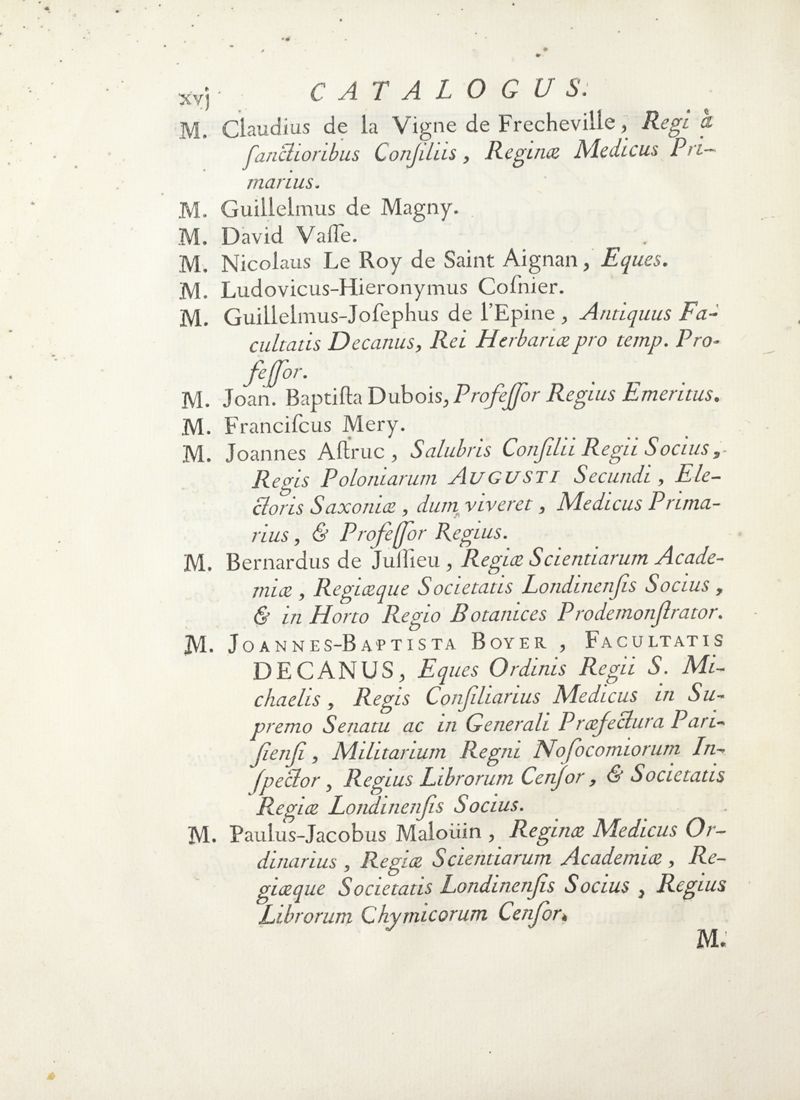 xvj CATALOGUS.
M. Claudius de la Vigne de Frecheville, Regi à
ſanctioribus Conſiliis, Reginæ Medicus Pri-
marius.
M. Guillelmus de Magny.
M. David Vaſſe.
M. Nicolaus Le Roy de Saint Aignan, Eques.
M. Ludovicus-Hieronymus Coſnier.
M. Guillelmus-Joſephus de l'Epine, Antiquus Fa-
cultatis Decanus, Rei Herbariæ pro temp. Pro-
feſſor.
M. Joan. Baptiſta Dubois, Profeſſor Regius Emeritus.
M. Franciſcus Mery.
M. Joannes Aſtruc, Salubris Conſilii Regii Socius,
Regis Poloniarum AUGUSTI Secundi, Ele-
ctoris Saxoniæ, dum viveret, Medicus Prima-
rius, & Profeſſor Regius.
M. Bernardus de Juſſieu, Regiæ Scientiarum Acade-
miæ, Regiæque Societatis Londinenſis Socius,
& in Horto Regio Botanices Prodemonſtrator.
M. JOANNES-BAPTISTA BOYER, FACULTATIS
DECANUS, Eques Ordinis Regii S. Mi-
chaelis, Regis Conſiliarius Medicus in Su-
premo Senatu ac in Generali Præfectura Pari-
ſienſi, Militarium Regni Noſocomiorum In-
ſpector, Regius Librorum Cenſor, & Societatis
Regiæ Londinenſis Socius.
M. Paulus-Jacobus Maloüin, Reginæ Medicus Or-
dinarius, Regiæ Scientiarum Academiæ, Re-
giæque Societatis Londinenſis Socius, Regius
Librorum Chymicorum Cenſor.
M.